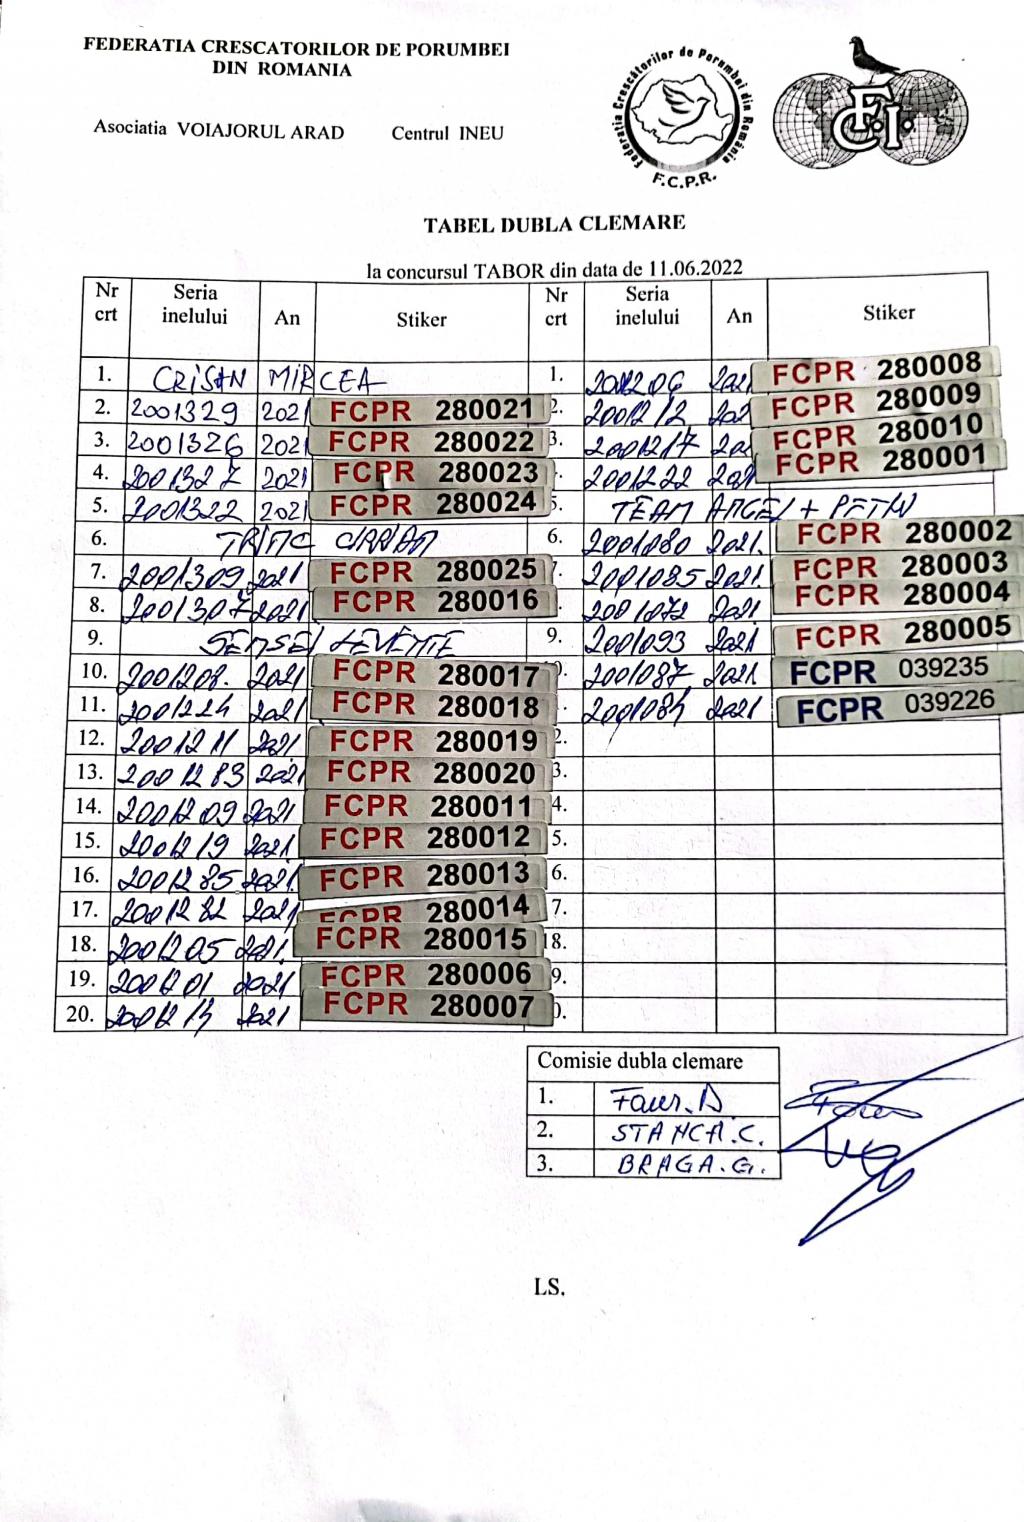 FEDERATIA CRESCATORILOR DE PORUMBEI
DIN ROMANIA
Asociatia VOIAJORUL ARAD Centrul INEU
Federatia Crescătorilor de Porumbei din România
F.C.P.R.
F.C.I.
TABEL DUBLA CLEMARE
la concursul TABOR din data de 11.06.2022
Nr crt Seria inelului An Stiker Nr crt Seria inelului An Stiker
1. CRISAN MIRCEA 1. 2021 FCPR 280008
2. 2001329 2021 FCPR 280021 2. 2001212 202 FCPR 280009
3. 2001326 2021 FCPR 280022 3. 2001217 202 FCPR 280010
4. 2001327 2021 FCPR 280023 2001222 2021 FCPR 280001
5. 2001322 2021 FCPR 280024 5. TEAM + 
6. 6. 2001080 2021. FCPR 280002
7. 2001309 2021 FCPR 280025 2001085 2021. FCPR 280003
8. 2001307 2021 FCPR 280016 2001072 2021 FCPR 280004
9. 9. 2001093 2021 FCPR 280005
10. 2001208. 2021 FCPR 280017 2001087 2021 FCPR 039235
11. 2001224 2021 FCPR 280018 2001084 2021 FCPR 039226
12. 2001211 2021 FCPR 280019 2.
13. 2001283 2021 FCPR 280020 3.
14. 2001209 2021 FCPR 280011 4.
15. 2001219 2021 FCPR 280012 5.
16. 2001285 2021. FCPR 280013 6.
17. 2001282 2021 FCPR 280014 7.
18. 2001205 2021. FCPR 280015 18.
19. 2001201 2021 FCPR 280006 9.
20. 2021 FCPR 280007 0.
Comisie dubla clemare
1. Faur. D
2. STANCA. C.
3. BRAGA. G.
LS.